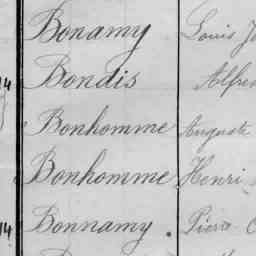 Bonamy Louis J
14 Bondis Alfre
Bonhomme Auguste
Bonhomme Henri
14 Bonnamy. Pierre